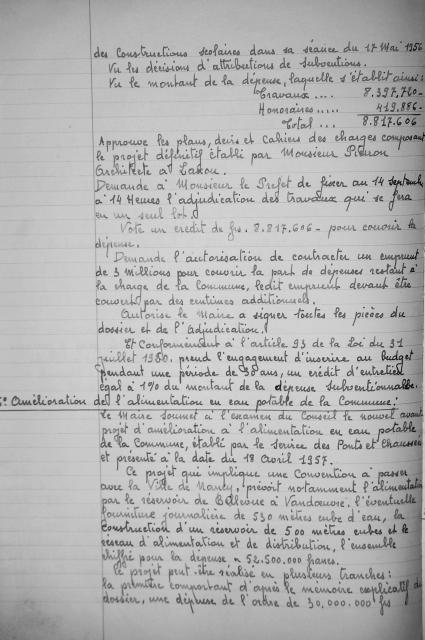 des Constructions scolaires dans sa séance du 17 Mai 1956
Vu les décisions d'attributions de subventions.
Vu le montant de la dépense, laquelle s'établit ainsi:
Travaux .... 8.397.720-
Honoraires ..... 419.886-
Total ... 8.817.606
Approuve les plans, devis et Cahiers des charges composant
le projet définitif établi par Monsieur
Architecte à Laxou.
Demande à Monsieur le Préfet de fixer au 14 septembre
à 14 Heures l'adjudication des travaux qui se fera
en un seul lot.
Vote un crédit de frs. 8.817.606- pour couvrir la
dépense.
Demande l'autorisation de contracter un emprunt
de 3 Millions pour couvrir la part de dépenses restant à
la charge de la Commune, ledit emprunt devant être
couvert par des centimes additionnels.
Autorise le Maire à signer toutes les pièces du
dossier et de l'Adjudication.
Et Conformément à l'article 93 de la Loi du 31
juillet 1950, prend l'engagement d'inscrire au budget
pendant une période de 30 ans, un crédit d'entretien
égal à 1% du montant de la dépense subventionnable.
5° Amélioration de l'alimentation en eau potable de la Commune:
Le Maire soumet à l'examen du Conseil le nouvel avant
projet d'amélioration à l'alimentation en eau potable
de la Commune, établi par le Service des Ponts et Chaussées
et présenté à la date du 18 Avril 1957.
Ce projet qui implique une Convention à passer
avec la Ville de Nancy, prévoit notamment l'alimentation
par le réservoir de Bellevue à Vandoeuvre, l'éventuelle
fourniture journalière de 530 mètres cube d'eau, la
construction d'un réservoir de 500 mètres cubes et le
réseau d'alimentation et de distribution, l'ensemble
chiffré pour la dépense à 52.500.000 francs.
Le projet peut être réalisé en plusieurs tranches:
la première comportant d'après le mémoire explicatif du
dossier, une dépense de l'ordre de 30.000.000 frs